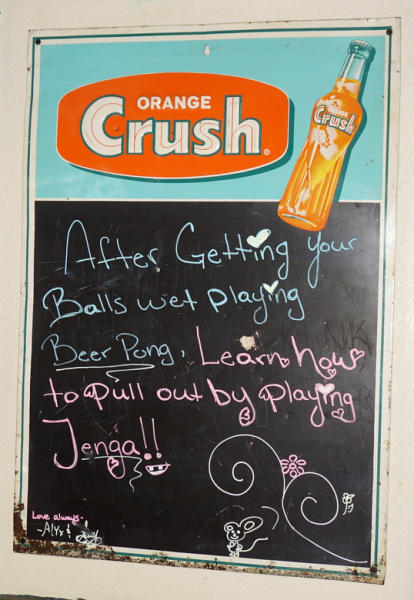 ORANGE
Crush®
ORANGE
Crush
After Getting your
Balls wet playing
Beer Pong, Learn how
to pull out by playing
Jenga!!
Love always-